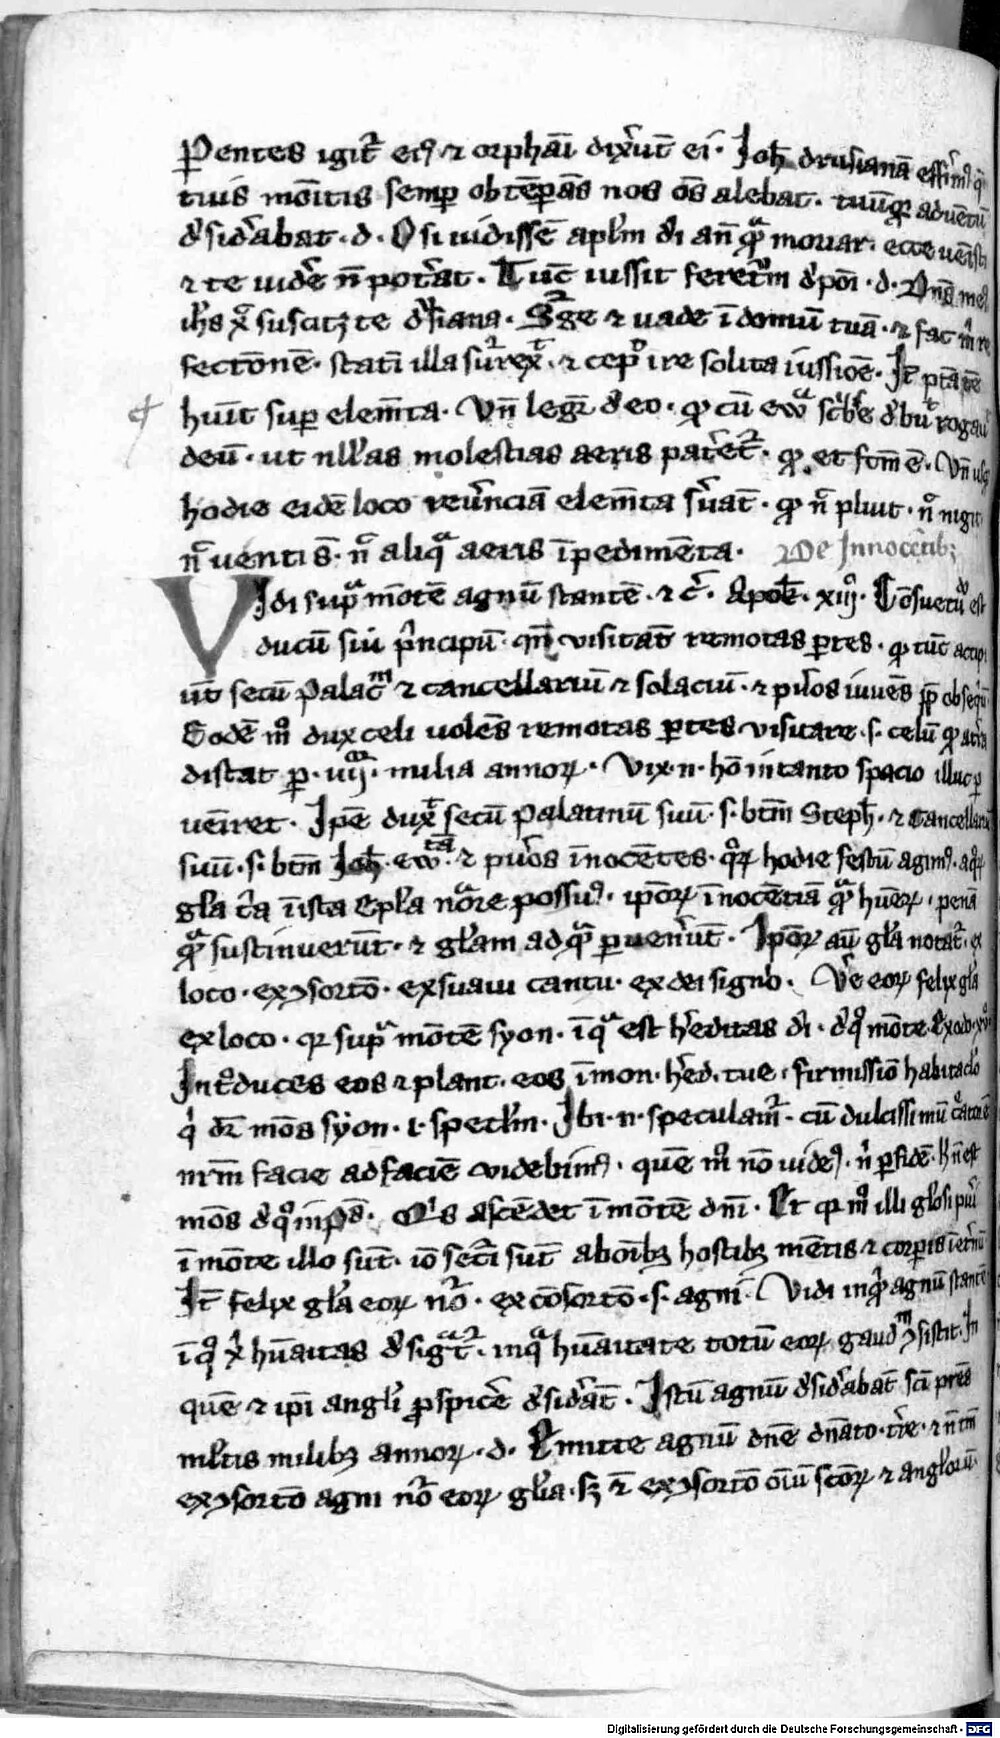 Pentes igit̄ ei9 ⁊ orphāi dix̄ut ei · Joh̄ drusianā effīm9 q̄
tuis mōitis semp obtēpās nos oēs alebat · tuūq aduētū
d̄sid̄abat · d · O si uidissē aplm̄ di an̄ qͣ moriar · ecce uēisti
⁊ te uid̄e n̄ pot̄at · Tūc iussit feretm̄ d̄poi · d · Dn̄s me9
ih̄s xͣ suscitꝫ te d̄siana · Sͬge ⁊ uade ī domū tuā · ⁊ fac m̄ re
fectōnē · statī illa sūrex̄ · ⁊ cep̄ ire solita iussiōe · It̄ ptātē
huīt sup elem̄ta · Vn̄ legͬ d̄ eo · ꝙ cū ewͣ sc̄be d̄but rogauͭ
deū · ut nll̄as molestias aeris pat̄etͬ · ꝙ et fcm̄ ē · Vn̄ usq
hodie eidē loco reū̄nciā elem̄ta s̄uāt · ꝙ n̄ pluit · n̄ nīgit
n̄ uentis · n̄ aliqͣ aeris īpedimēta · De Innocētibꝫ
Vidi supͣ mōtē agnū stantē · ⁊ c̄ · Apok̄ · xiiij · Cōsuetūdo est
ducū siū p̄ncipū · qn̄ visitāt remotas ptes · ꝙ tūc accipi
ūt secū Palatͫ ⁊ cancellariū ⁊ solaciū · ⁊ pūos iuuēs ꝓp obseqū
Eodē mͦ dux celi uolēs remotas ptes visitare · s · celū ꝙ a t̄ra
distat p · uij · milia annoꝝ · Vix · n · hō in tanto spacio illuc p
ueīret · Ip̄e dux secū palatinū suū · s · btm̄ Steph̄ · ⁊ Cancellariū
suū · s · btm̄ Joh̄ · ewͭͣ · ⁊ pūos īnocētes · qͦꝝ hodie festū agim9 · a qͦꝝ
gl̄a c̄ca īista Epl̄a noͣre possu9 · ipōꝝ īnocētiā qͣ hūerͬ · penā
qͣ sustinuerūt · ⁊ gl̄am ad qͣ puen̄ūt · Ipōꝝ aū gl̄a notat̄ · ex
loco · ex ꝯsortō · ex suaui cantu · ex dei signo · V̄e eoꝝ felix gl̄a
ex loco · qꝛ supͣ mōtē syon · ī qͣ est h̄editas di · d̄ qͦ mōte Exodo · xvͦ
Intͦduces eos ⁊ plant · eos ī mon · h̄ed · tue · firmissiō habitac̄lo
q̄ dͬ mōs syon · ł · spetl̄m · Ibi · n · speculamͬ · cū dulcissimū c̄atorē
nrm̄ facie ad faciē videbim9 · quē mͦ nō uide9 · n̄ p fidē · h̄ n̄ est
mōs d̄ qͦ in ps̄ · Qͥs ascēdet ī mōtē dn̄i · Et qꝛ mͦ illi gl̄osi pūi
ī mōte illo sūt · iō sec̄i sūt ab oībꝫ hostibꝫ mētis ⁊ corpis īet̄nū
It̄ felix gl̄a eoꝝ nō̄ · ex cōsortō · s · agni · Vidi inqͥ agnū stantē
ī qͦ x̄ hūanitas d̄sigͣtͬ · in qͣ hūanitate totū eoꝝ gaudͫ ꝯsistit · In
quē ⁊ ipi angl̄i ꝓspic̄e d̄sid̄āt · Istū agnū d̄sid̄abāt sc̄i pr̄es
ml̄tis milibꝫ annoꝝ · d · Emitte agnū dn̄e dn̄ato · t̄re · ⁊ n̄ tm̄
ex ꝯsortō agni nō̄ eoꝝ gl̄ia · sꝫ ⁊ ex ꝯsortō oīū sc̄oꝝ ⁊ angl̄oꝝ
Digitalisierung gefördert durch die Deutsche Forschungsgemeinschaft - DFG